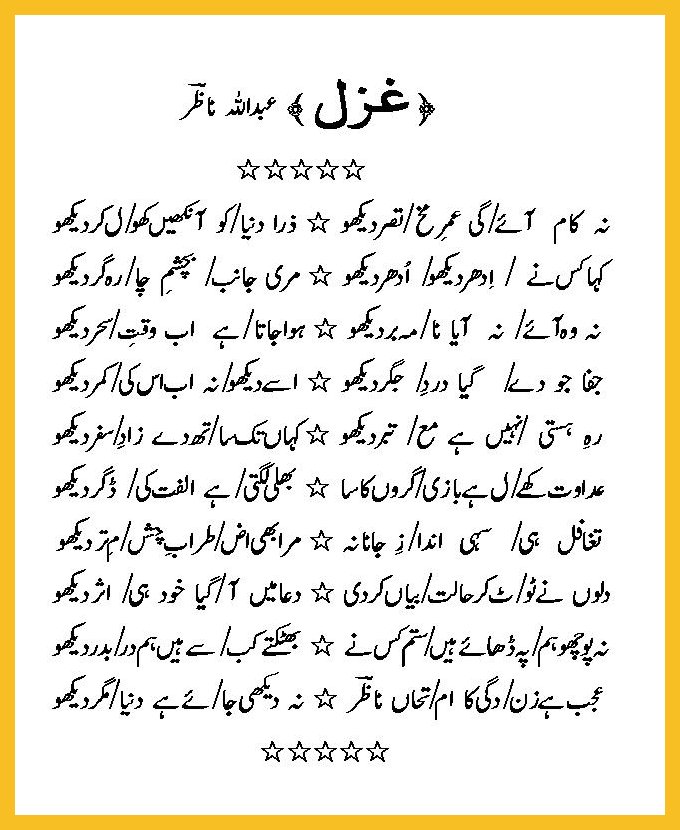 ﴿ غزل ﴾ عبداللہ ناظرؔ
☆☆☆☆☆
نہ کام آئے/گی عمرِ مخ/تصر دیکھو ☆ ذرا دنیا/کو آنکھیں کھو/ل کر دیکھو
کہا کس نے / اِدھر دیکھو/ اُدھر دیکھو ☆ مری جانب/ بچشمِ چا/رہ گر دیکھو
نہ وہ آئے/ نہ آیا نا/مہ بر دیکھو ☆ ہوا جاتا/ہے اب وقتِ/سحر دیکھو
جفا جو دے/ گیا دردِ/ جگر دیکھو ☆ اسے دیکھو/نہ اب اس کی/کمر دیکھو
رہِ ہستی /نہیں ہے مع/ تبر دیکھو ☆ کہاں تک سا/تھ دے زادِ/سفر دیکھو
عداوت کھے/ل ہے بازی/گروں کا سا ☆ بھلی لگتی/ہے الفت کی/ ڈگر دیکھو
تغافل ہی/ سہی اندا/زِ جانانہ ☆ مرا بھی اض/طرابِ چش/مِ تر دیکھو
دلوں نے ٹو/ٹ کر حالت/بیاں کر دی ☆ دعا میں آ/گیا خود ہی/ اثر دیکھو
نہ پوچھو ہم/پہ ڈھائے ہیں/ستم کس نے ☆ بھٹکتے کب/سے ہیں ہم در/بدر دیکھو
عجب ہے زن/دگی کا ام/تحاں ناظرؔ ☆ نہ دیکھی جا/ئے ہے دنیا/مگر دیکھو
☆☆☆☆☆